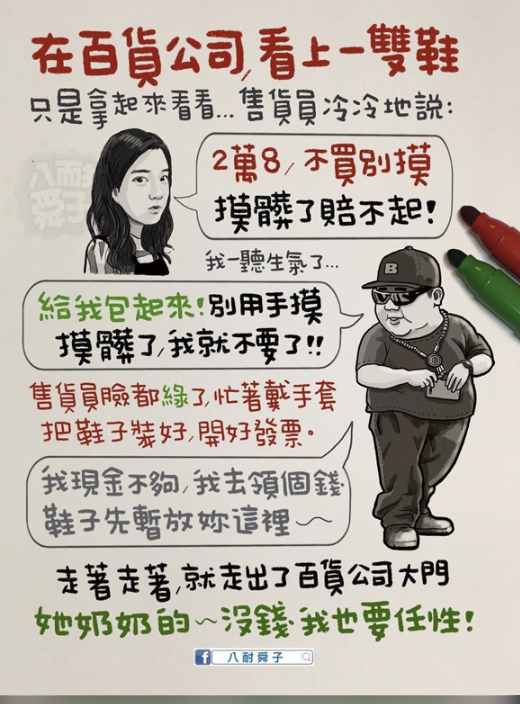 在百貨公司,看上一雙鞋
只是拿起來看看...售貨員冷冷地説:
八耐
舜子
2萬8,不買別摸
摸髒了賠不起!
我一聽生氣了...
B
給我包起來!別用手摸
摸髒了,我就不要了!!
售貨員臉都綠了,忙著戴手套
把鞋子裝好,開好發票。
我現金不夠,我去領個錢
鞋子先暫放妳這裡～
走著走著,就走出了百貨公司大門
她奶奶的～沒錢我也要任性!
f 八耐舜子